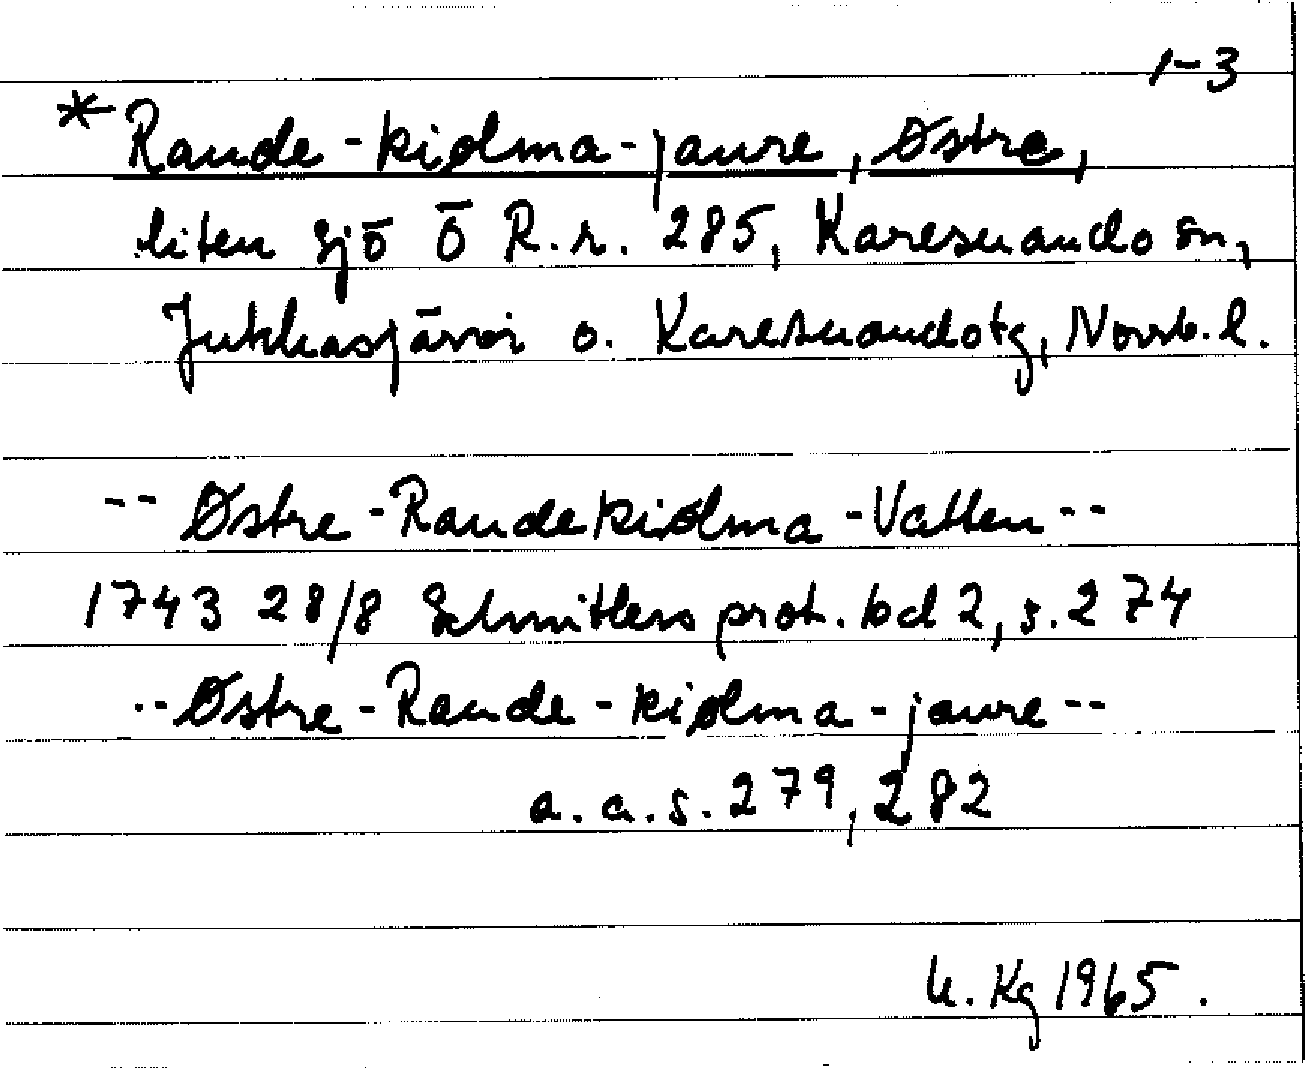 1-3
* Raude-kiølma-jaure, Østre,
liten sjö Ö R.r. 285, Karesuando sn,
Jukkasjärvi o. Karesuandotg, Norrb. l.
-- Østre-Raudekiølma-Vatten--
1743 28/8 Schnitlers prot. bd 2, s. 274
--Østre-Raude-kiølma-jaure--
a. a. s. 279, 282
U. Kg 1965.